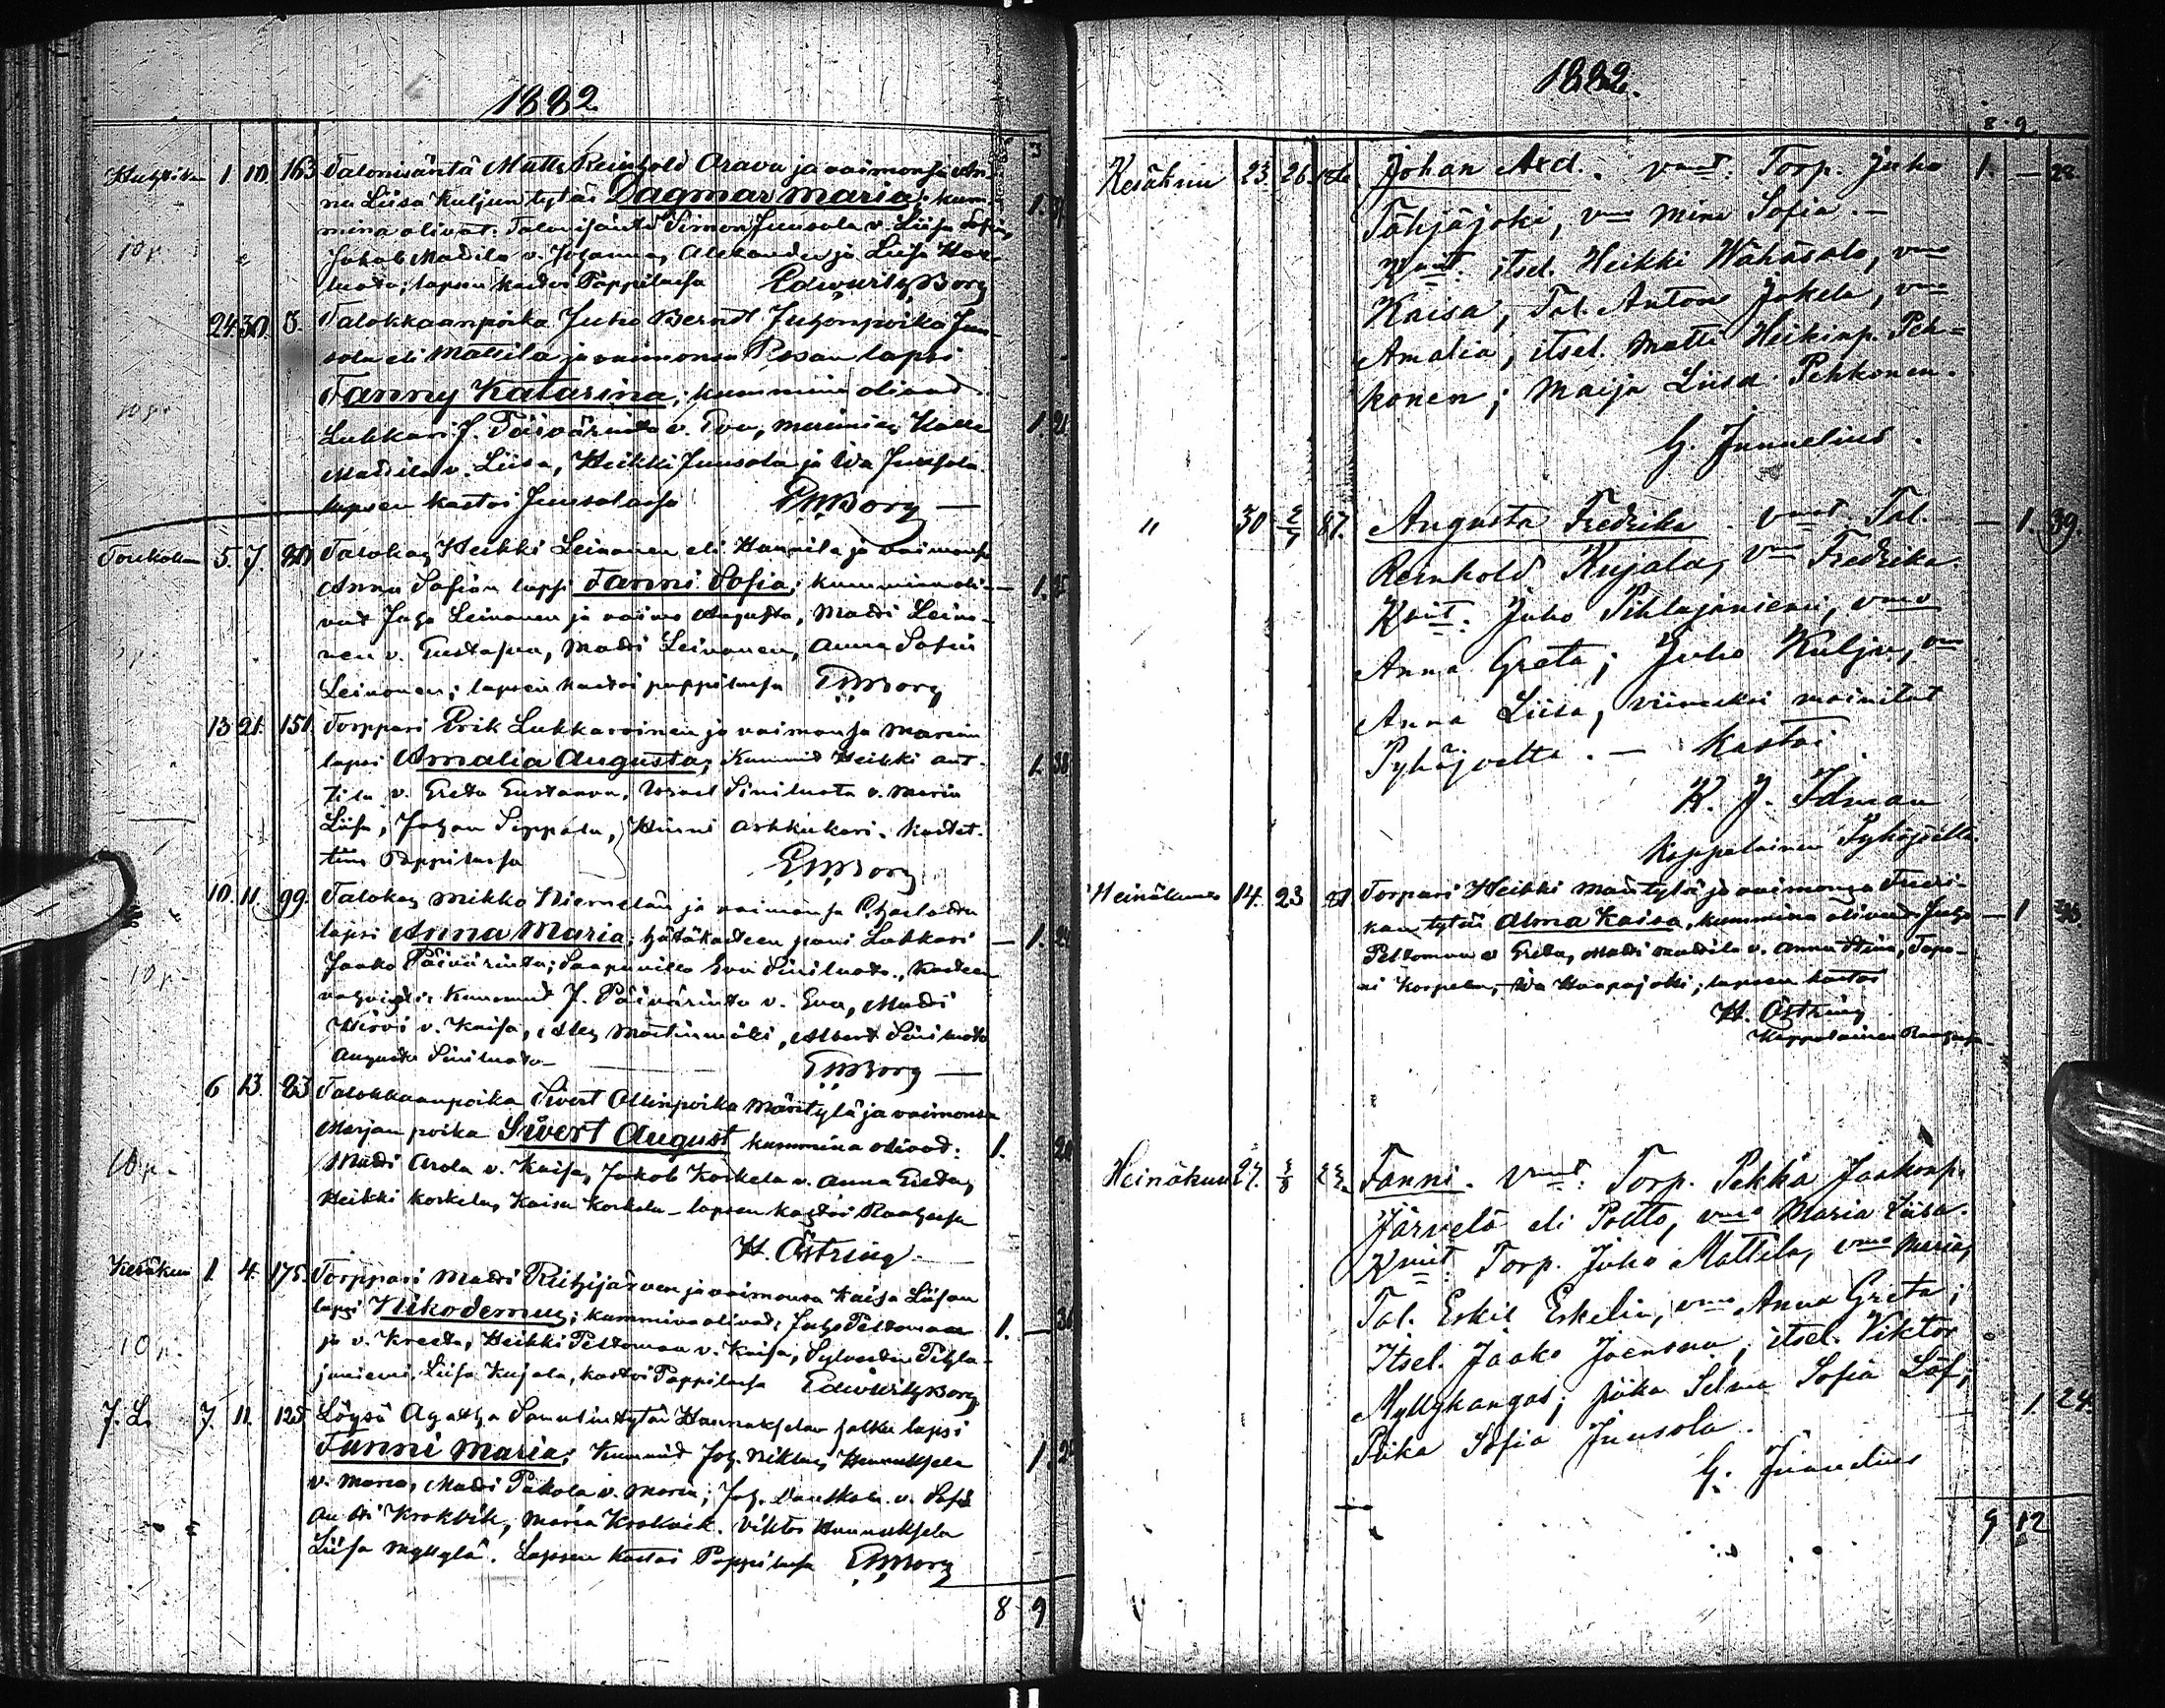 1882.
Huhtikuu 1. 10. 163 Talonisäntä Matti Reinhold Orava ja vaimonsa An-
na Liisa Kuljun tytär Dagmar Maria; kum- 1.
mina olivat: Talonisäntä Simon Juusola v. Liisa Sofia,
10 p. Jakob Mattila v. Johanna, Aleksander ja Liisa
lapsen kastoi Pappilassa Edw. Wilh. Borg
24. 30. 5. Talokkaanpoika Juho Berndt Juhonpoika Juu-
sola eli Mattila ja vaimonsa Rosan lapsi
10 p. Fanny Katarina; kummina olivad
Lukkari J. Päivärinta v. Eva, Kalle 1. 21.
Mattila v. Liisa, Heikki Juusola ja Ida Juusola
lapsen kastoi Juusolassa EWBorg —
Toukokuu 5. 7. Talokas Heikki Leinonen eli Hannila ja vaimonsa
Anna Sofian lapsi Fanni Sofia; kummina oli- — 1.
vat Juho Leinonen ja vaimo Augusta, Matti Leino-
nen v. Gustafva, Matti Leinonen, Anna Sofia
Leinonen; lapsen kastoi pappilassa EWBorg
13 21. 151. Torppari Erik Lukkaroinen ja vaimonsa Marian
lapsi Amalia Augusta; Kummid Heikki Ant- 1. 38
tila v. Greta Gustaava, Israel Siniluoto v. Maria
Liisa, Johan Seppälä, Hinni kastet-
tiin Pappilassa EWBorg
10. 11. 99. Talokas Mikko Niemelän ja vaimonsa
lapsi Anna Maria; hätäkasteen pani Lukkari — 1. 24
10 p. Jaako Päivärinta; Saapuvilla Eva Siniluoto, kasteen
vahvisti: Kummid J. Päivärinta v. Eva, Matti
Hirvi v. Kaisa, Martinmäki, Albert Siniluoto
Augusta Siniluoto — EWBorg —
6 13. 23 Talokkaanpoika Sivert Ollinpoika Mäntylä ja vaimonsa
Marjan poika Sivert August kummina olivad: 1. 20
10 p. Matti Arola v. Kaisa, Jakob Korkela v. Anna Greta,
Heikki Korkela, Kaisa Korkela — lapsen kastoi Raahessa
H. Östring
Kesäkuu 1. 4. 175. Torppari Matti Riihijärven ja vaimonsa Kaisa Liisan
lapsi Nikodemus; kummina olivat: Juho Peltomaa 1. — 31
10 p. ja v. Kreeta, Heikki Peltomaa v. Kaisa, Sylvester Pihla-
janiemi, Liisa Kujala, kastoi Pappilassa Edw. Wilh. Borg
J. L. 7. 11. 125 Löysä Agatha Samulintytär Hannuksela lapsi
Fanni Maria; Kummid Joh. Niklas Hannuksela 1
v. Maria, Matti Pakola v. Maria; Joh. v. Sofia
Antti Krokvik, Maria Krokvik. Viktor Hannuksela
Liisa Myllylä. Lapsen kastoi Pappilassa EWBorg
8 9
1882.
8 9
Kesäkuu 23. 26. 186 Johan Axel. Vmat: Torp. Juho 1. — 22.
Tähjäjoki, vmo Mina Sofia. —
Kmit: itsel. Heikki Wähäsalo, vmo
Kaisa, Tal. Anton Jokela, vmo
Amalia, itsel. Matti Heikinp. Peh=
konen; Maija Liisa Pehkonen.
G. Junnelius.
" 30 2/7 87. Augusta Fredrika. Vmat Tal. — 1. 39.
Reinhold Kujala, Vmo Fredrika.
Kmit: Juho Pihlajaniemi, vmo
Anna Greta; Juho Kulju, vmo
Anna Liisa, viimeksi mainitut
Pyhäjoelta. — Kastoi
K. J. Idman
Kappalainen Pyhäjoella.
Heinäkuu 14. 23 Torpari Heikki Mäntylä ja vaimonsa Fredri-
kan tytär Alma Kaisa, kummina olivad: Juho — 1
Peltomaa v. Greta, Matti Mattila v. Anna Stina, Tapa-
ni Korpela, Ida Haapajoki; lapsen kastoi
H. Östring
Kappalainen Raahessa
Heinäkuu 27. 3/8 Fanni. Vmat: Torp. Pekka Jaakonp.
Järvelä eli Poltto, vmo Maria Liisa.
Kmit: Torp. Juho Mattila, vmo Maria,
Tal. Eskil Eskelin, vmo Anna Greta;
Itsel. Jaako Joensuu, itsel. Viktor
Myllykangas; piika Selma Sofia Löf;
Piika Sofia Juusola. 1. 24.
G. Junnelius
9 12